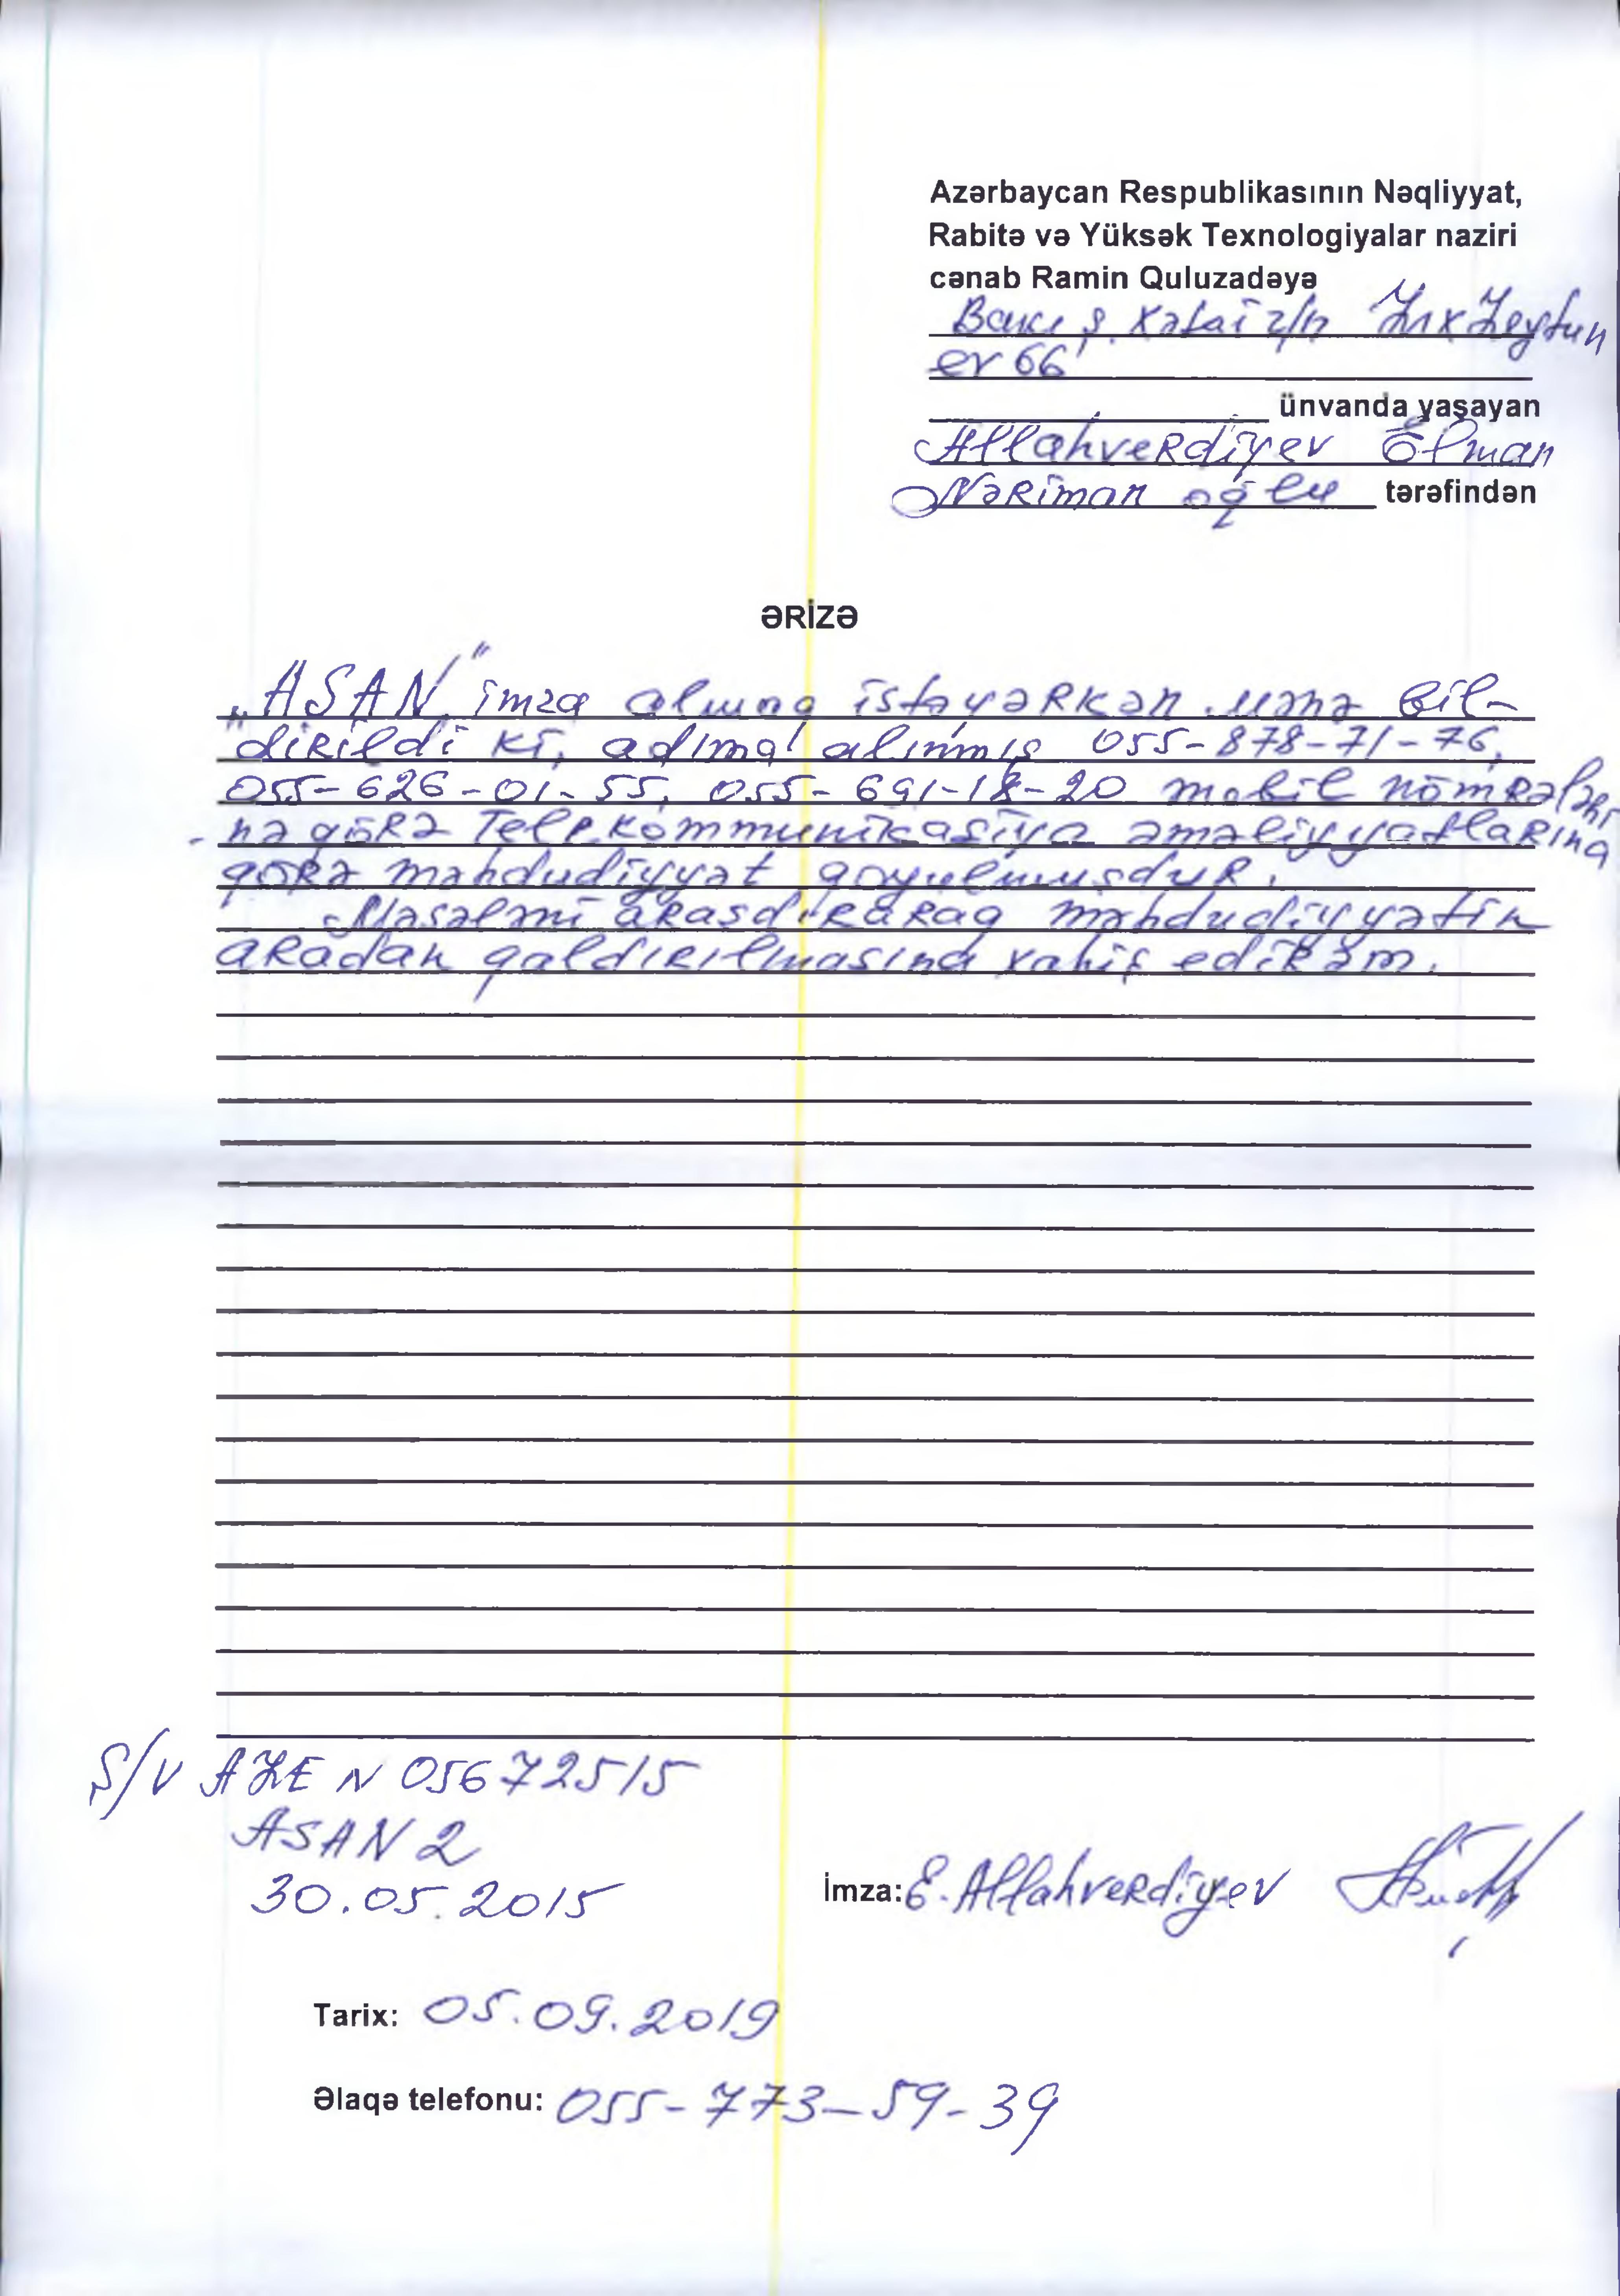 Azərbaycan Respublikasının Nəqliyyat,
Rabitə və Yüksək Texnologiyalar naziri
cənab Ramin Quluzadəyə
Bakı ş. Xətai r/n Zıx Zeytun
ev 66
ünvanda yaşayan
Allahverdiyev Elman
Nəriman oğlu tərəfindən
ƏRİZƏ
„ASAN" imza almaq istəyərkən mənə bil-
dirildi ki, adıma alınmış 055-878-71-76,
055-626-01-55, 055-691-18-20 mobil nömrələri
- nə görə Telekommunikasiya əməliyyatlarına
görə məhdudiyyət qoyulmuşdur.
Məsələni araşdıraraq məhdudiyyətin
aradan qaldırılmasına xahiş edirəm.
Ş/V AZE N 05672515
ASAN 2
30.05.2015
İmza: E. Allahverdiyev
Tarix: 05.09.2019
Əlaqə telefonu: 055-773-59-39